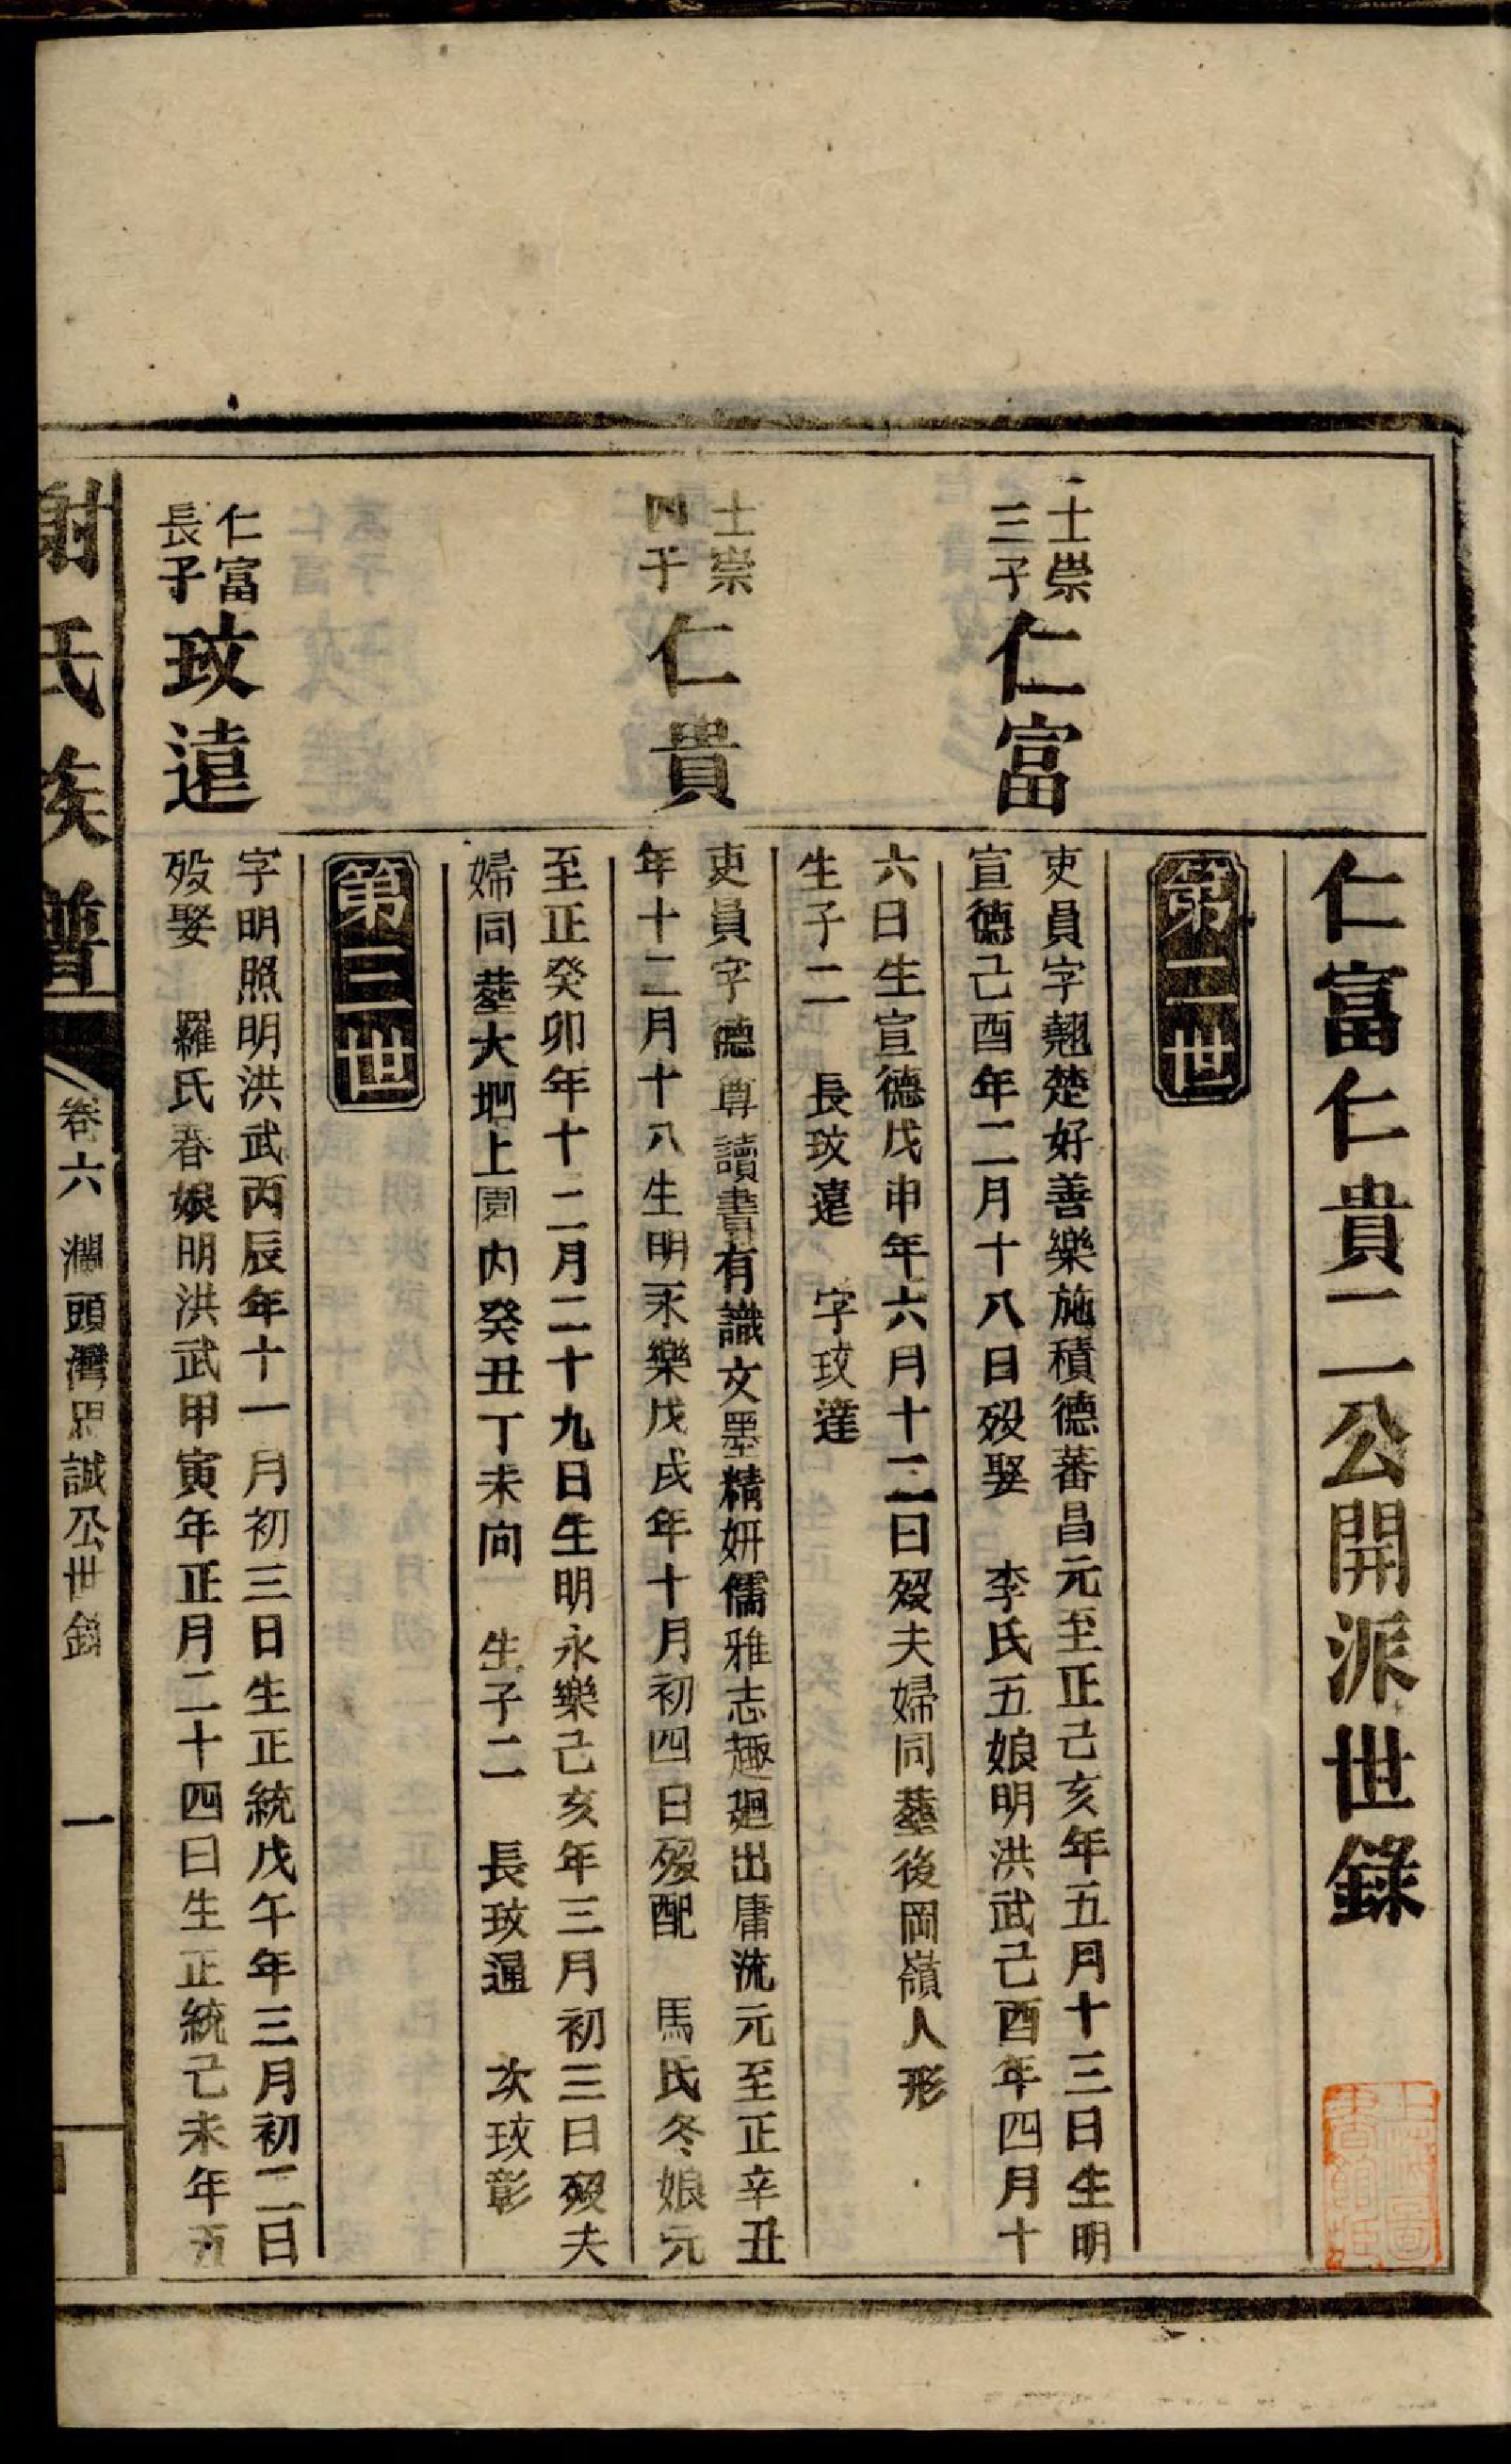 仁富仁貴二公開派世錄
第二世
士崇
三子
仁富
吏員字翹楚好善樂施積德蕃昌元至正己亥年五月十三日生明
宣德己酉年二月十八日殁娶　李氏五娘明洪武己酉年四月十
六日生宣德戊申年六月十二日殁夫婦同塟後岡嶺人形
生子二　長玟遠　字玟達
士崇
四子
仁貴
吏員字德尊讀書有識文墨精妍儒雅志趣廻出庸流元至正辛丑
年十二月十八生明永樂戊戌年十月初四日殁配　馬氏冬娘元
至正癸卯年十二月二十九日生明永樂己亥年三月初三日殁夫
婦同塟大坵上園内癸丑丁未向　生子二　長玟通　次玟彰
第三世
仁富
長子
玟遠
字明照明洪武丙辰年十一月初三日生正統戊午年三月初二日
殁娶　羅氏春娘明洪武甲寅年正月二十四日生正統己未年五
謝氏族譜
卷六　瀾頭灣思誠公世錄
一